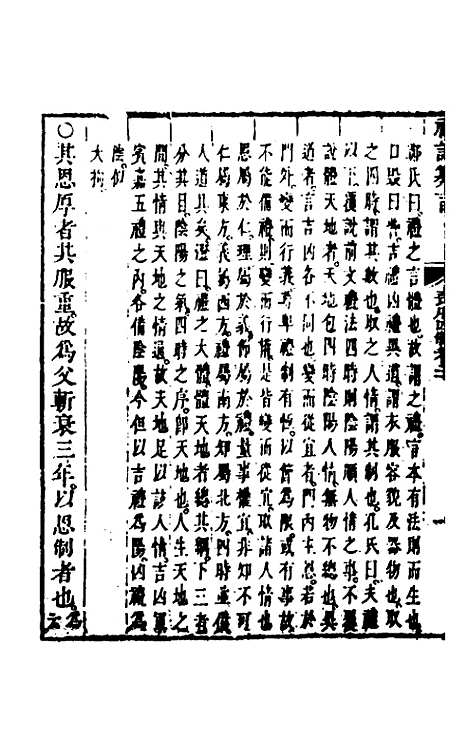 鄭氏曰禮之言體也故謂之禮言本有法則而生也
口毀曰訾吉禮凶禮異道謂衣服容貌及器物也取
之四時謂其數也取之人情謂其制也孔氏曰夫禮
以下覆說前文體法四時則陰陽順人情之事不覆
說體天地者天地包四時陰陽人情無物不總也異
道者言吉凶各不同也變而從宜者門內主恩若於
門外變而行義尊卑禮制有恆以節為限或有事故
不能備禮則變而行權是皆變而從宜取諸人情也
恩屬於仁理屬於義節屬於禮量事權宜非知不可
仁屬東方義屬西方禮屬南方知屬北方四時並備
人道具矣澄曰禮之大體體天地者總其綱下三者
分其目陰陽之氣四時之序即天地也人生天地之
間其情與天地之情通故天地足以該人情吉凶軍
賓嘉五禮之內各備陰陽今但以吉禮為陽凶禮為
陰似
太拘
○其恩厚者其服重故為父斬衰三年以恩制者也為云